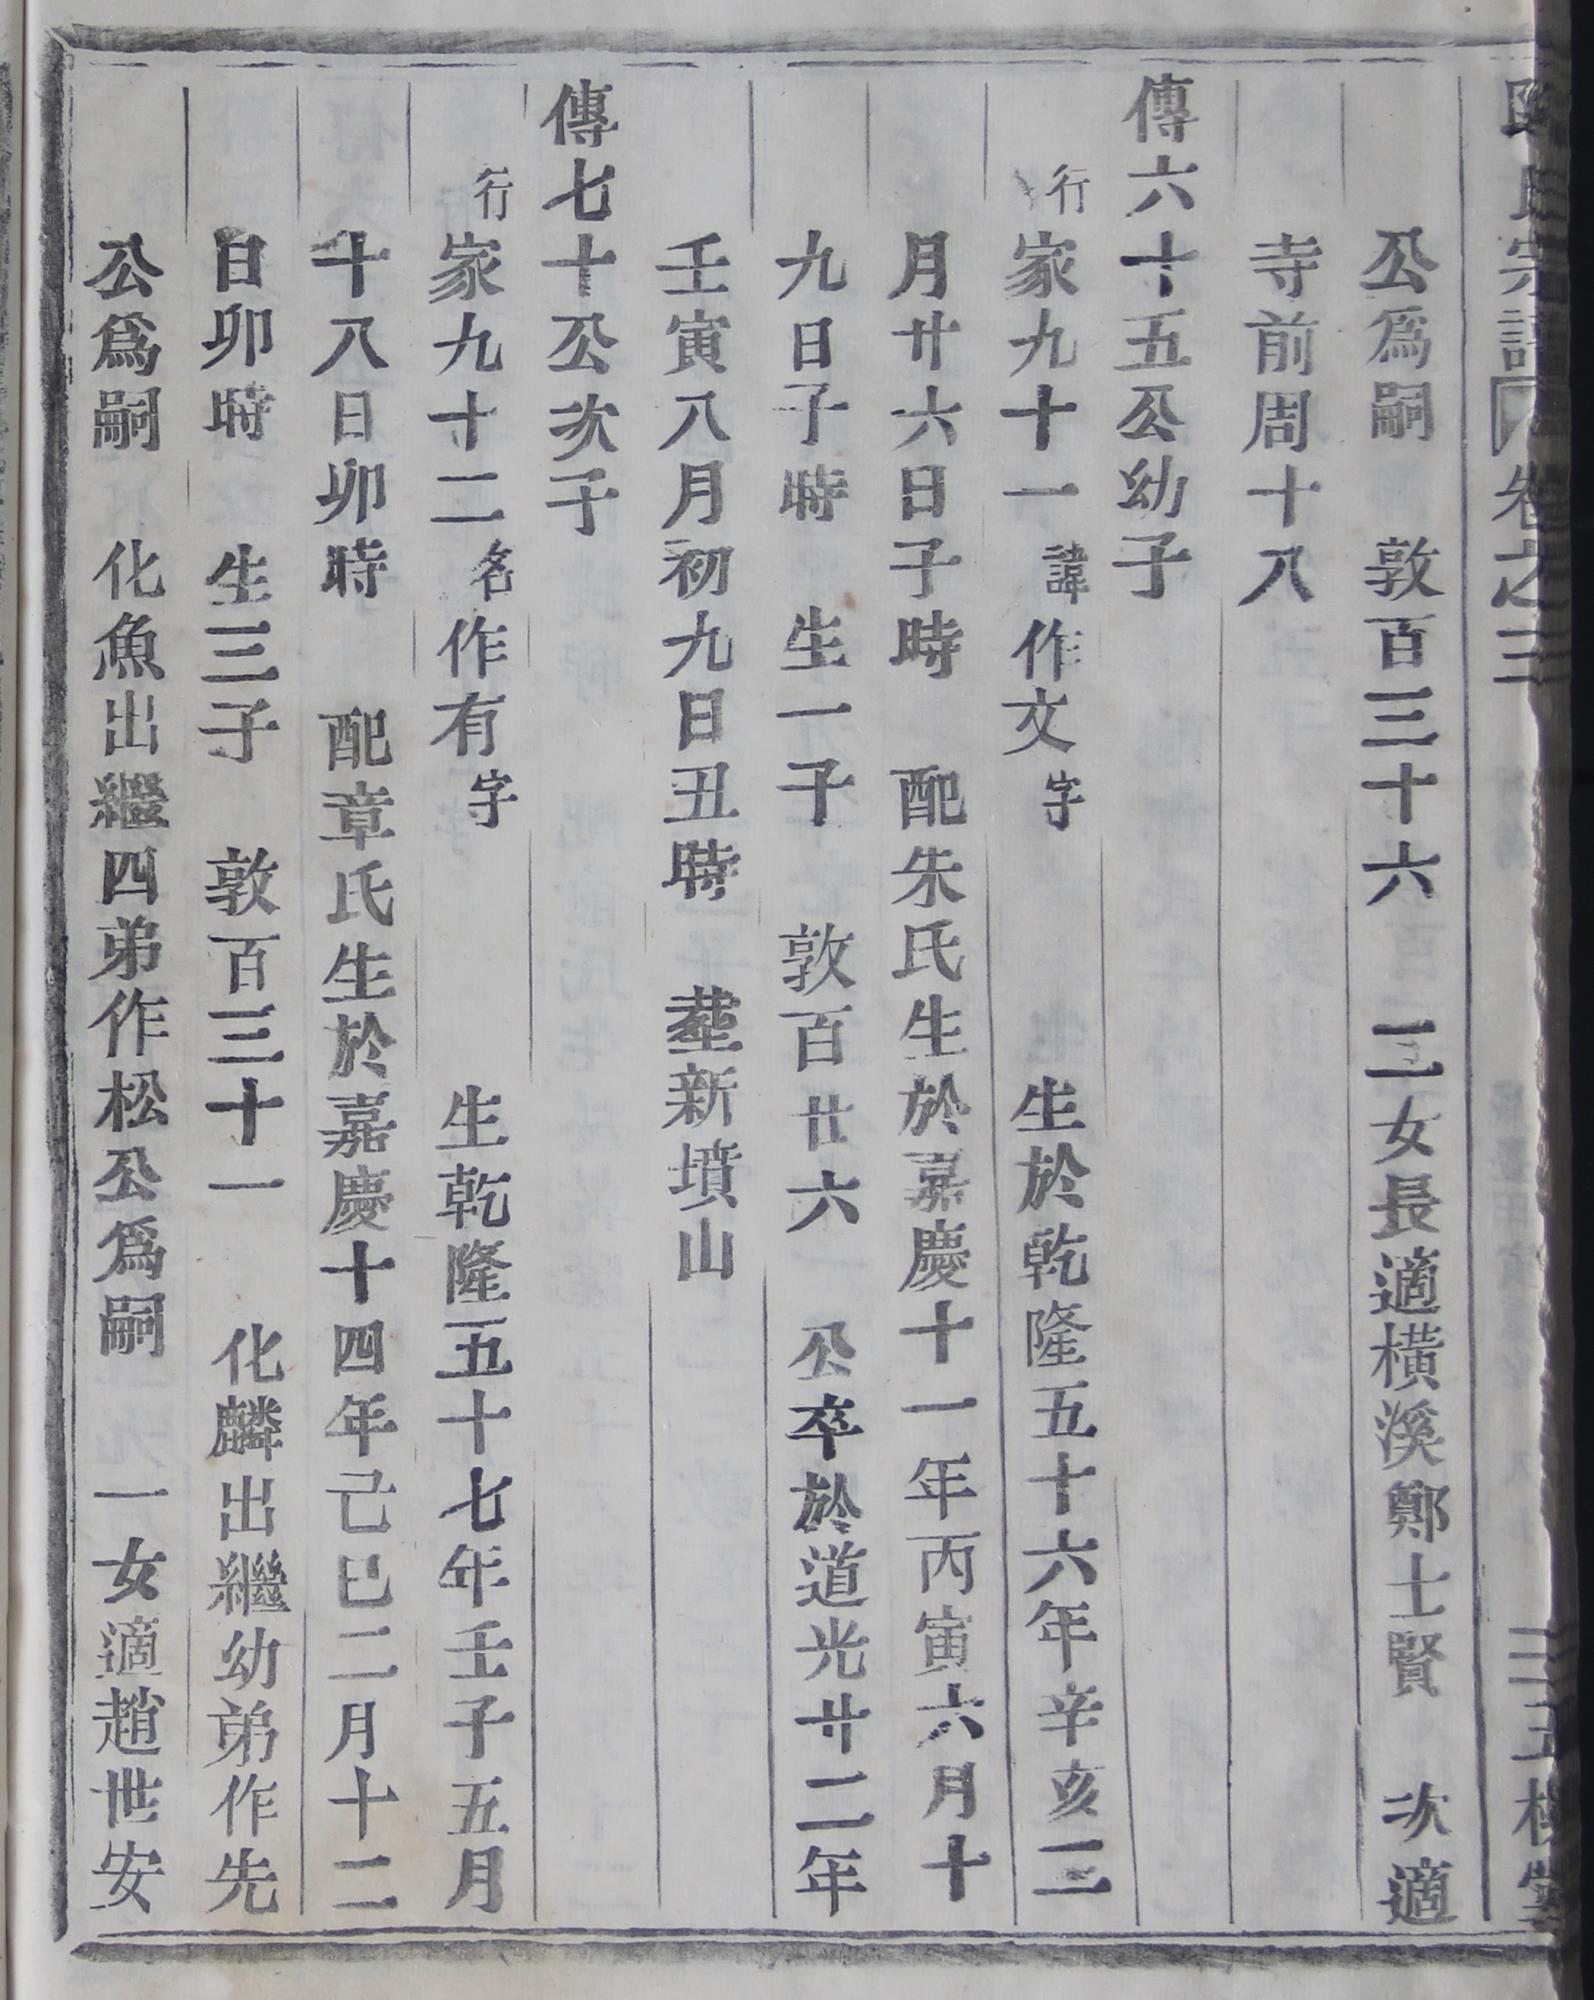 氏宗譜 卷之三 五
公爲嗣 敦百三十六 三女長適橫溪鄭士賢 次適
寺前周十八
傳六十五公幼子
行家九十一諱作文字 生於乾隆五十六年辛亥三
月廿六日子時 配朱氏生於嘉慶十一年丙寅六月十
九日子時 生一子 敦百廿六 公卒於道光廿二年
壬寅八月初九日丑時 塟新墳山
傳七十公次子
行家九十二名作有字 生乾隆五十七年壬子五月
十八日卯時 配章氏生於嘉慶十四年己巳二月十二
日卯時 生三子 敦百三十一 化麟出繼幼弟作先
公爲嗣 化魚出繼四弟作松公爲嗣 一女適趙世安